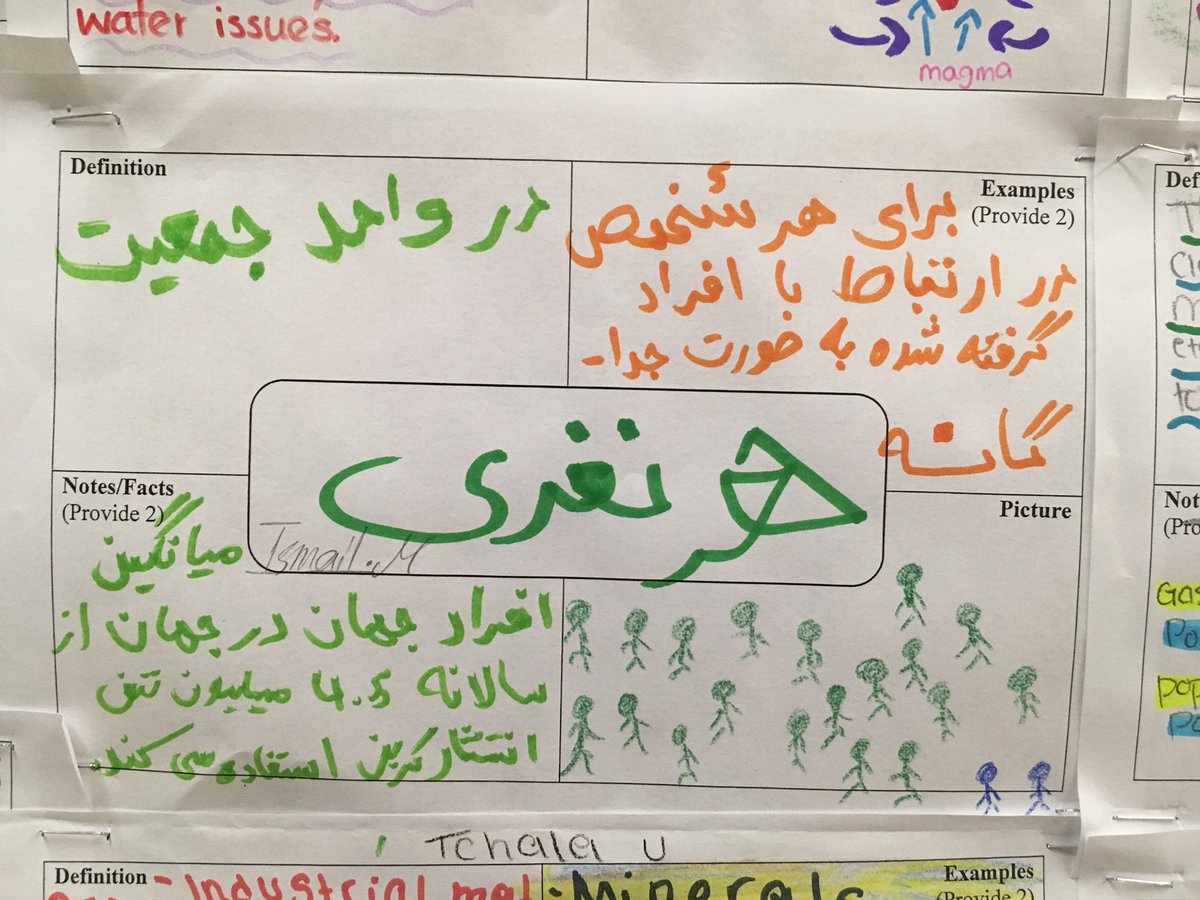 water issues.
magma
Definition
در واحد جمعیت
Examples
(Provide 2)
برای هر شخص
در ارتباط با افراد
گرفته شده به صورت جدا-
گانه
هر نفری
Ismail.M
Notes/Facts
(Provide 2)
میانگین
افراد جهان در جهان از
سالانه 4.5 میلیون تن
انتشار کربن استفاده می کند.
Picture
Tchala U
Definition
- Industrial mat
Examples
(Provide 2)
• Minerals